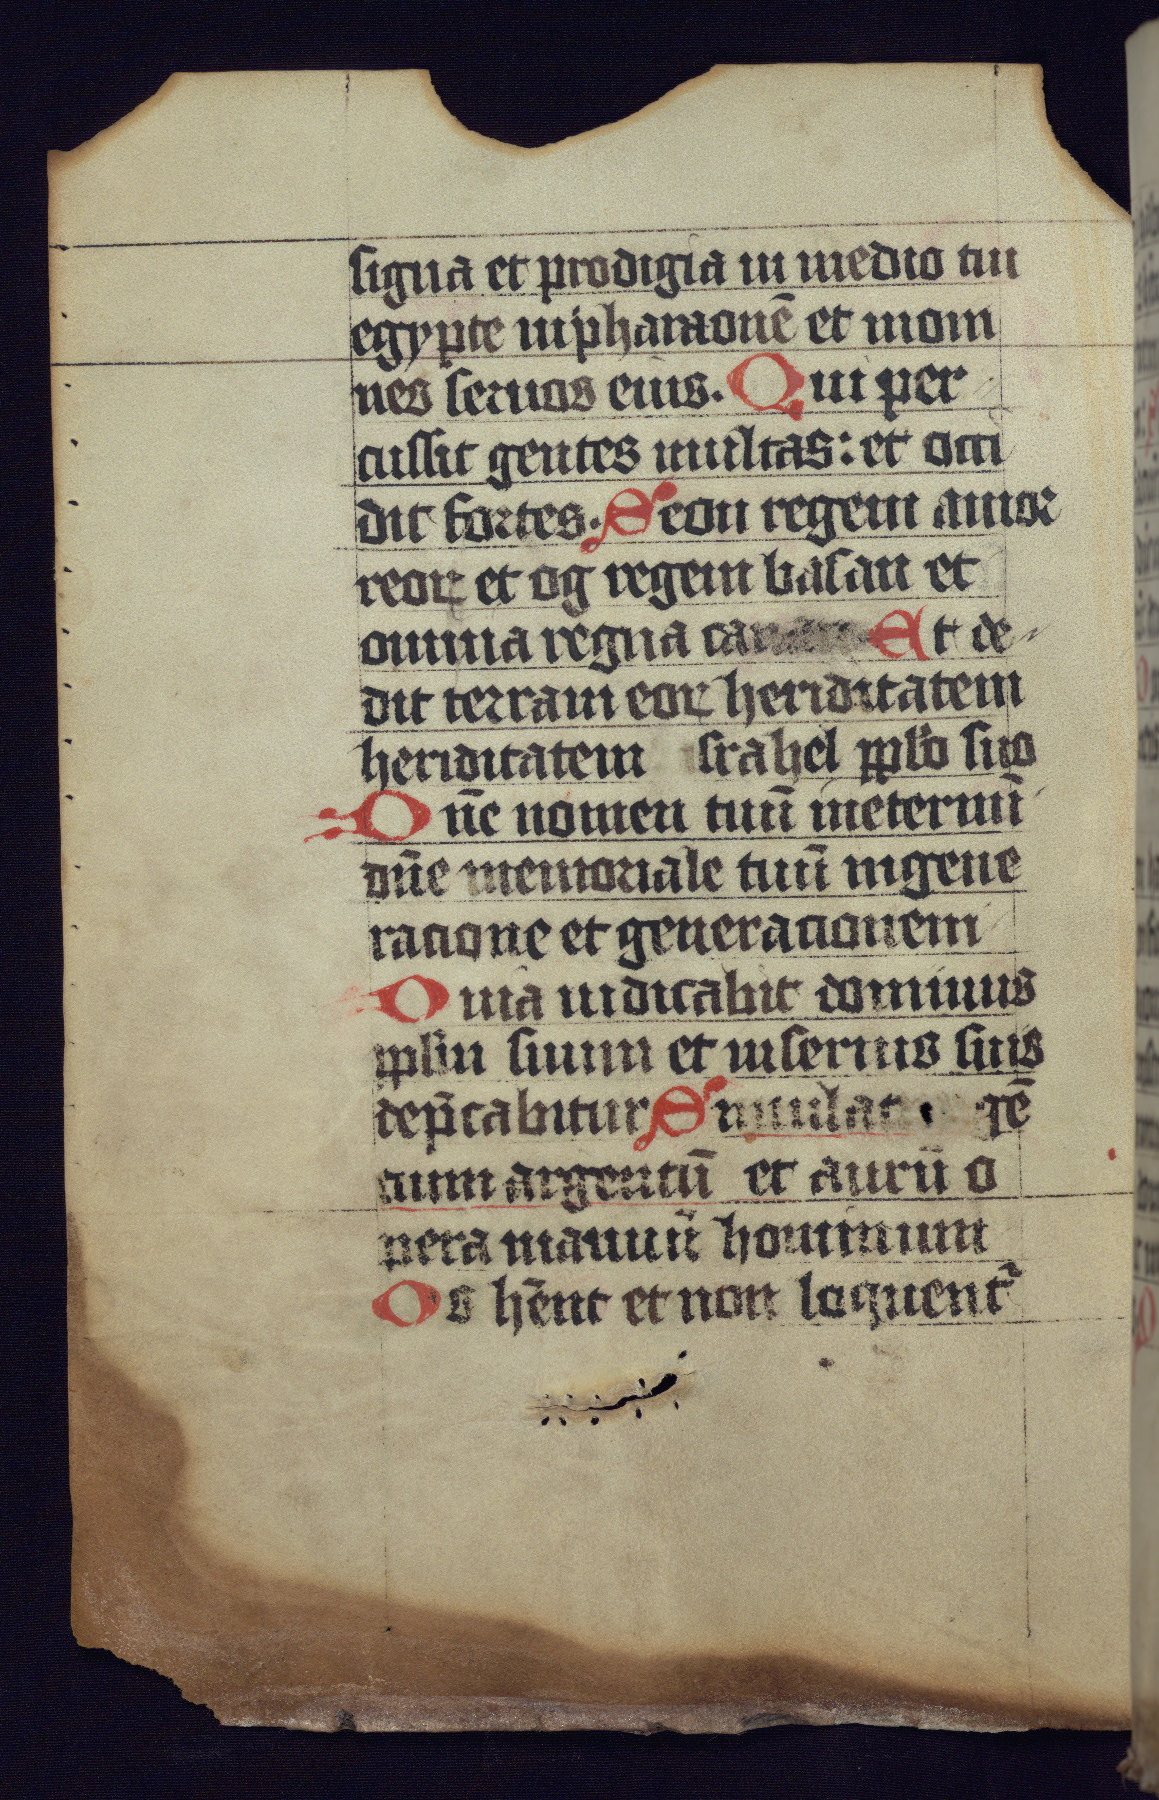 signa et prodigia in medio tui
egypte inpharaonē et inom
nes seruos eius. Qui per
cussit gentes multas: et occi
dit fortes. Seon regem amor
reoꝝ et og regem basan et
omnia regna Et de
dit terram eoꝝ heriditatem
heriditatem srahel pplo suo
Dn̄e nomen tuū ineternū
dn̄e memoriale tuū ingene
racione et generacionem
Quia iudicabit dominus
pplm suum et inseruis suis
dep̄cabitur Simulac gē
cium argentū et aurū o
pera manuū hominum
Os hēnt et non loquent᷑